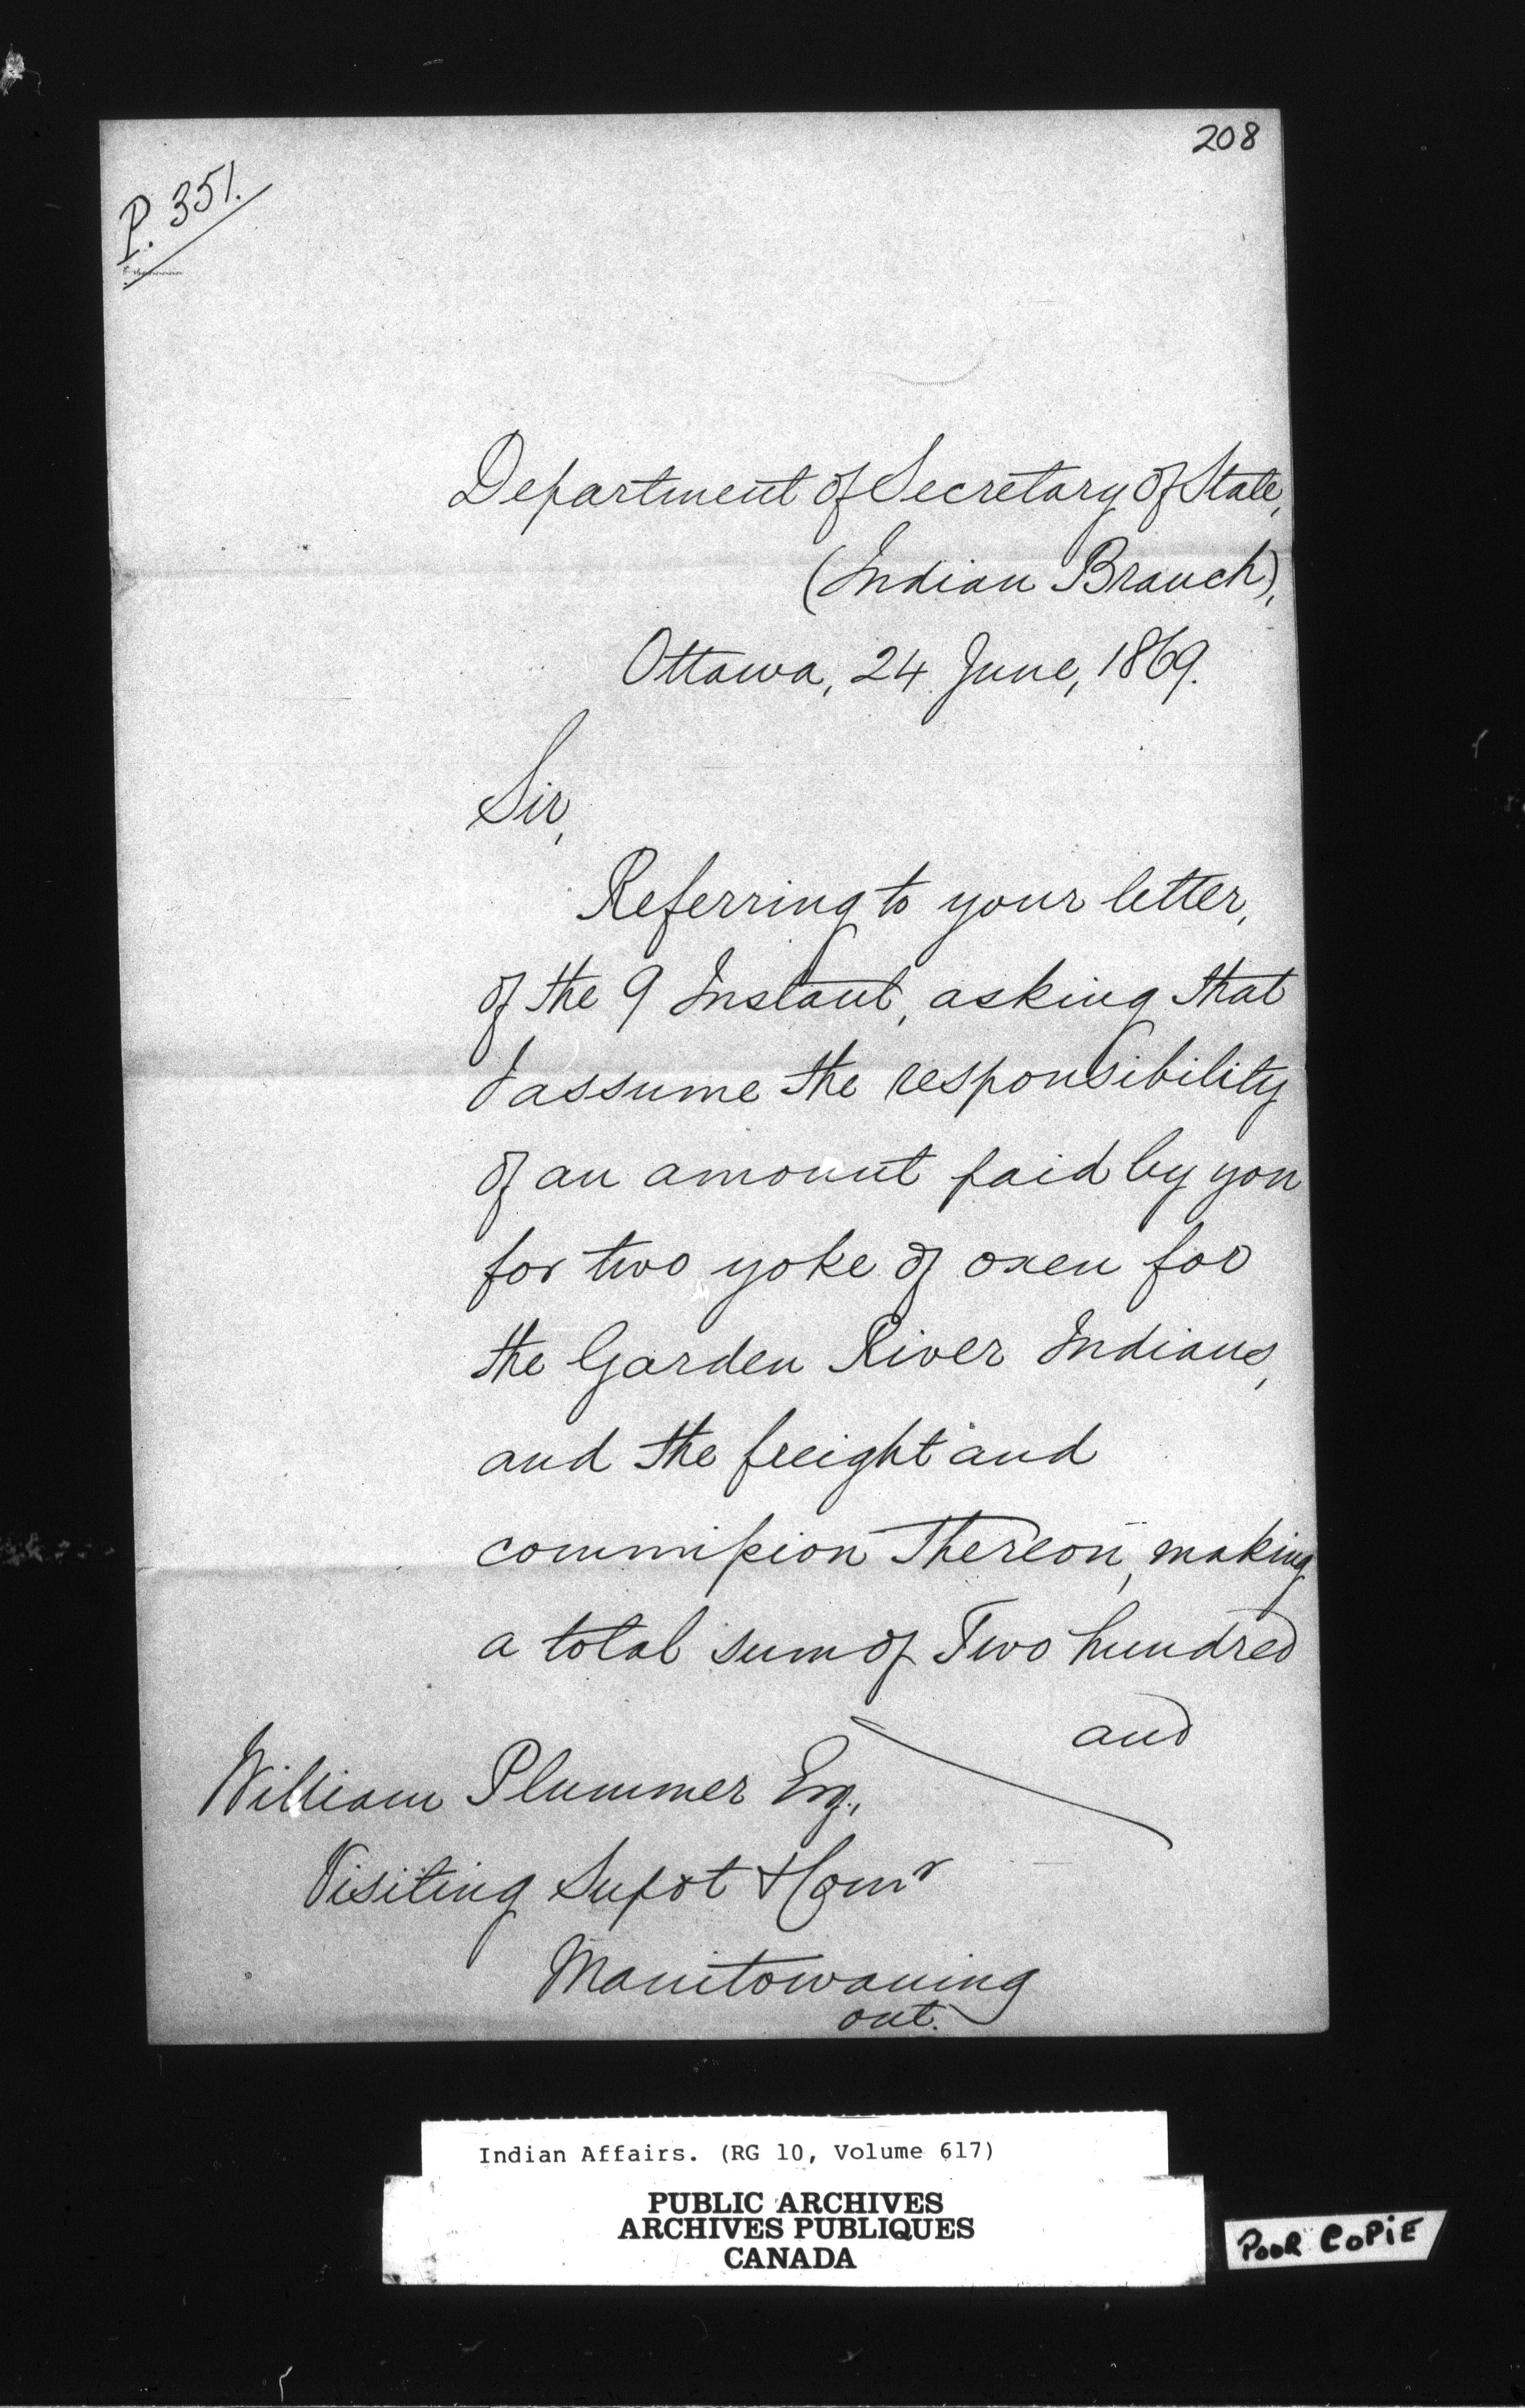 208
P. 351.
Department of Secretary of State,
(Indian Branch),
Ottawa, 24 June, 1869.
Sir,
Referring to your letter,
of the 9 Instant, asking that
I assume the responsibility
of an amount paid by you
for two yoke of oxen for
the Garden River Indians,
and the freight and
commission Thereon, making
a total sum of Two hundred
and
William Plummer Esq.,
Visiting Supdt & Comr
Manitowaning
Ont.
Indian Affairs. (RG 10, Volume 617)
PUBLIC ARCHIVES
ARCHIVES PUBLIQUES
CANADA
POOR COPiE